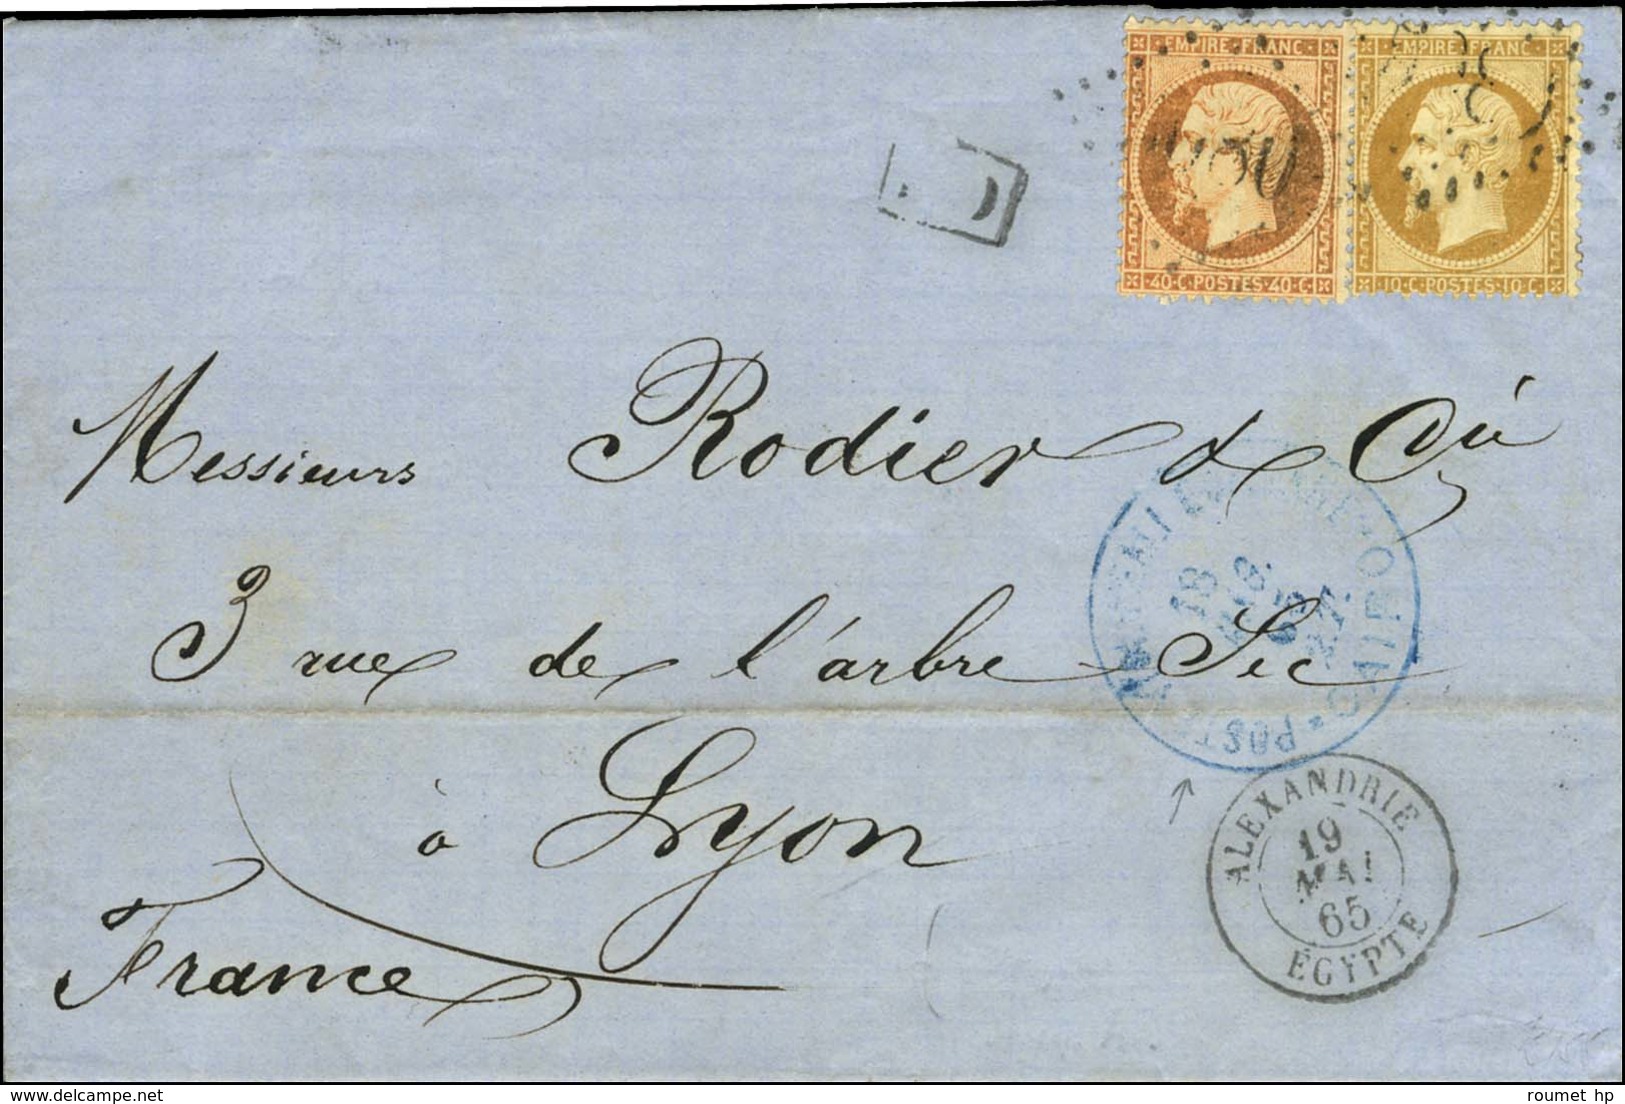 EMPIRE FRANC
EMPIRE FRANC
40·C·POSTES·40·C·
10·C·POSTES·10·C·
Messieurs Rodier & Cie
3 rue de l'arbre Sec
à Lyon
France
18
MAG.
65
CAIRO
ALEXANDRIE
19
MAI
65
ÉGYPTE
roumet hp